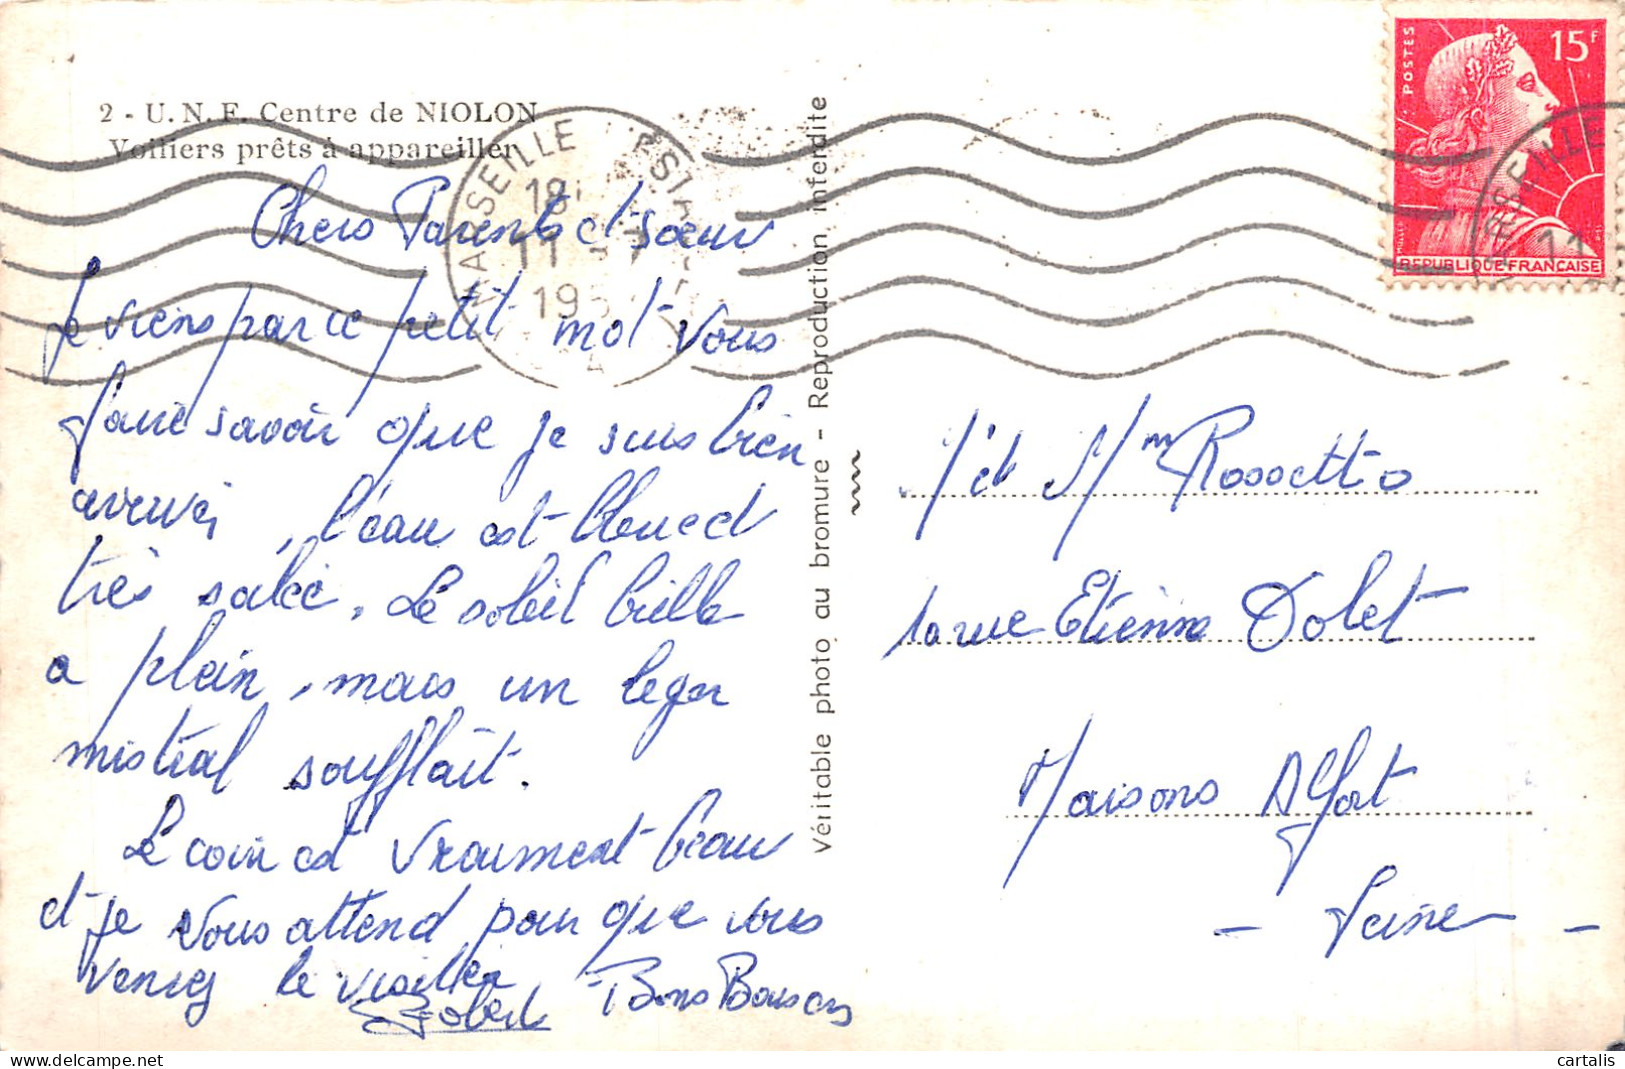 2 - U. N. F. Centre de NIOLON
Voiliers prêts à appareiller
MARSEILLE
11
195
A
POSTES
15F
REPUBLIQUE FRANÇAISE
MARSEILLE
11
Chers Parents et sœur
Je viens par ce petit mot vous
faire savoir que je suis bien
arrivé, l'eau est bleue et
très salée. Le soleil brille
a plein, mais un leger
mistral soufflait.
Le coin est vraiment beau
et je vous attend pour que vous
veniez le visiter
Bons Baisers
Robert
Véritable photo au bromure - Reproduction interdite
M et Mm Rossetto
rue Etienne Dolet
Maisons Alfort
- Seine -
cartalis